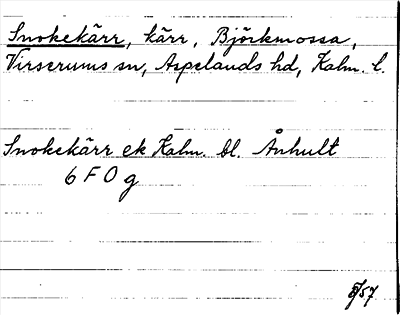 Snokekärr, kärr, Björkmossa,
Virserums sn, Aspelands hd, Kalm. l.
Snokekärr ek Kalm. bl. Ånhult
6 F 0 g